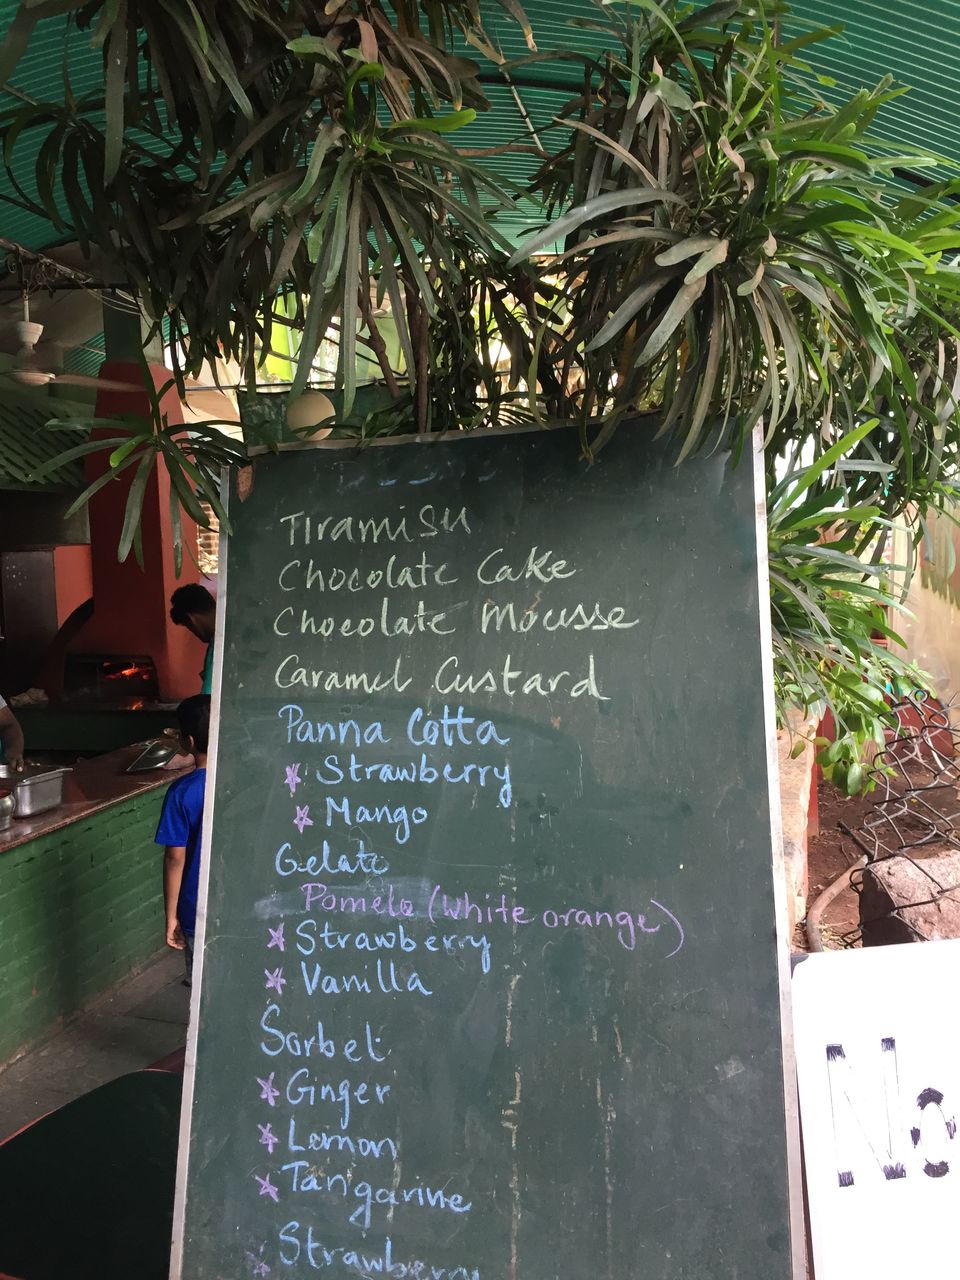 Tiramisu
Chocolate Cake
Chocolate Mousse
Caramel Custard
Panna Cotta
* Strawberry
* Mango
Gelato
Pomelo (white orange)
* Strawberry
* Vanilla
Sorbet
* Ginger
* Lemon
* Tangarine
* Strawberry
No